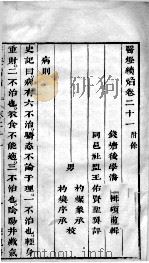 醫學穎焰卷二十一 附錄
錢塘後學潘 楫碩甫輯
同邑社盟王佑賢聖翼評
男 杓燦象承 校
杓燝序承
病則
史記曰病有六不治驕恣不論于理一不治也輕身
重財二不治也衣食不能適三不治也陰陽并藏氣